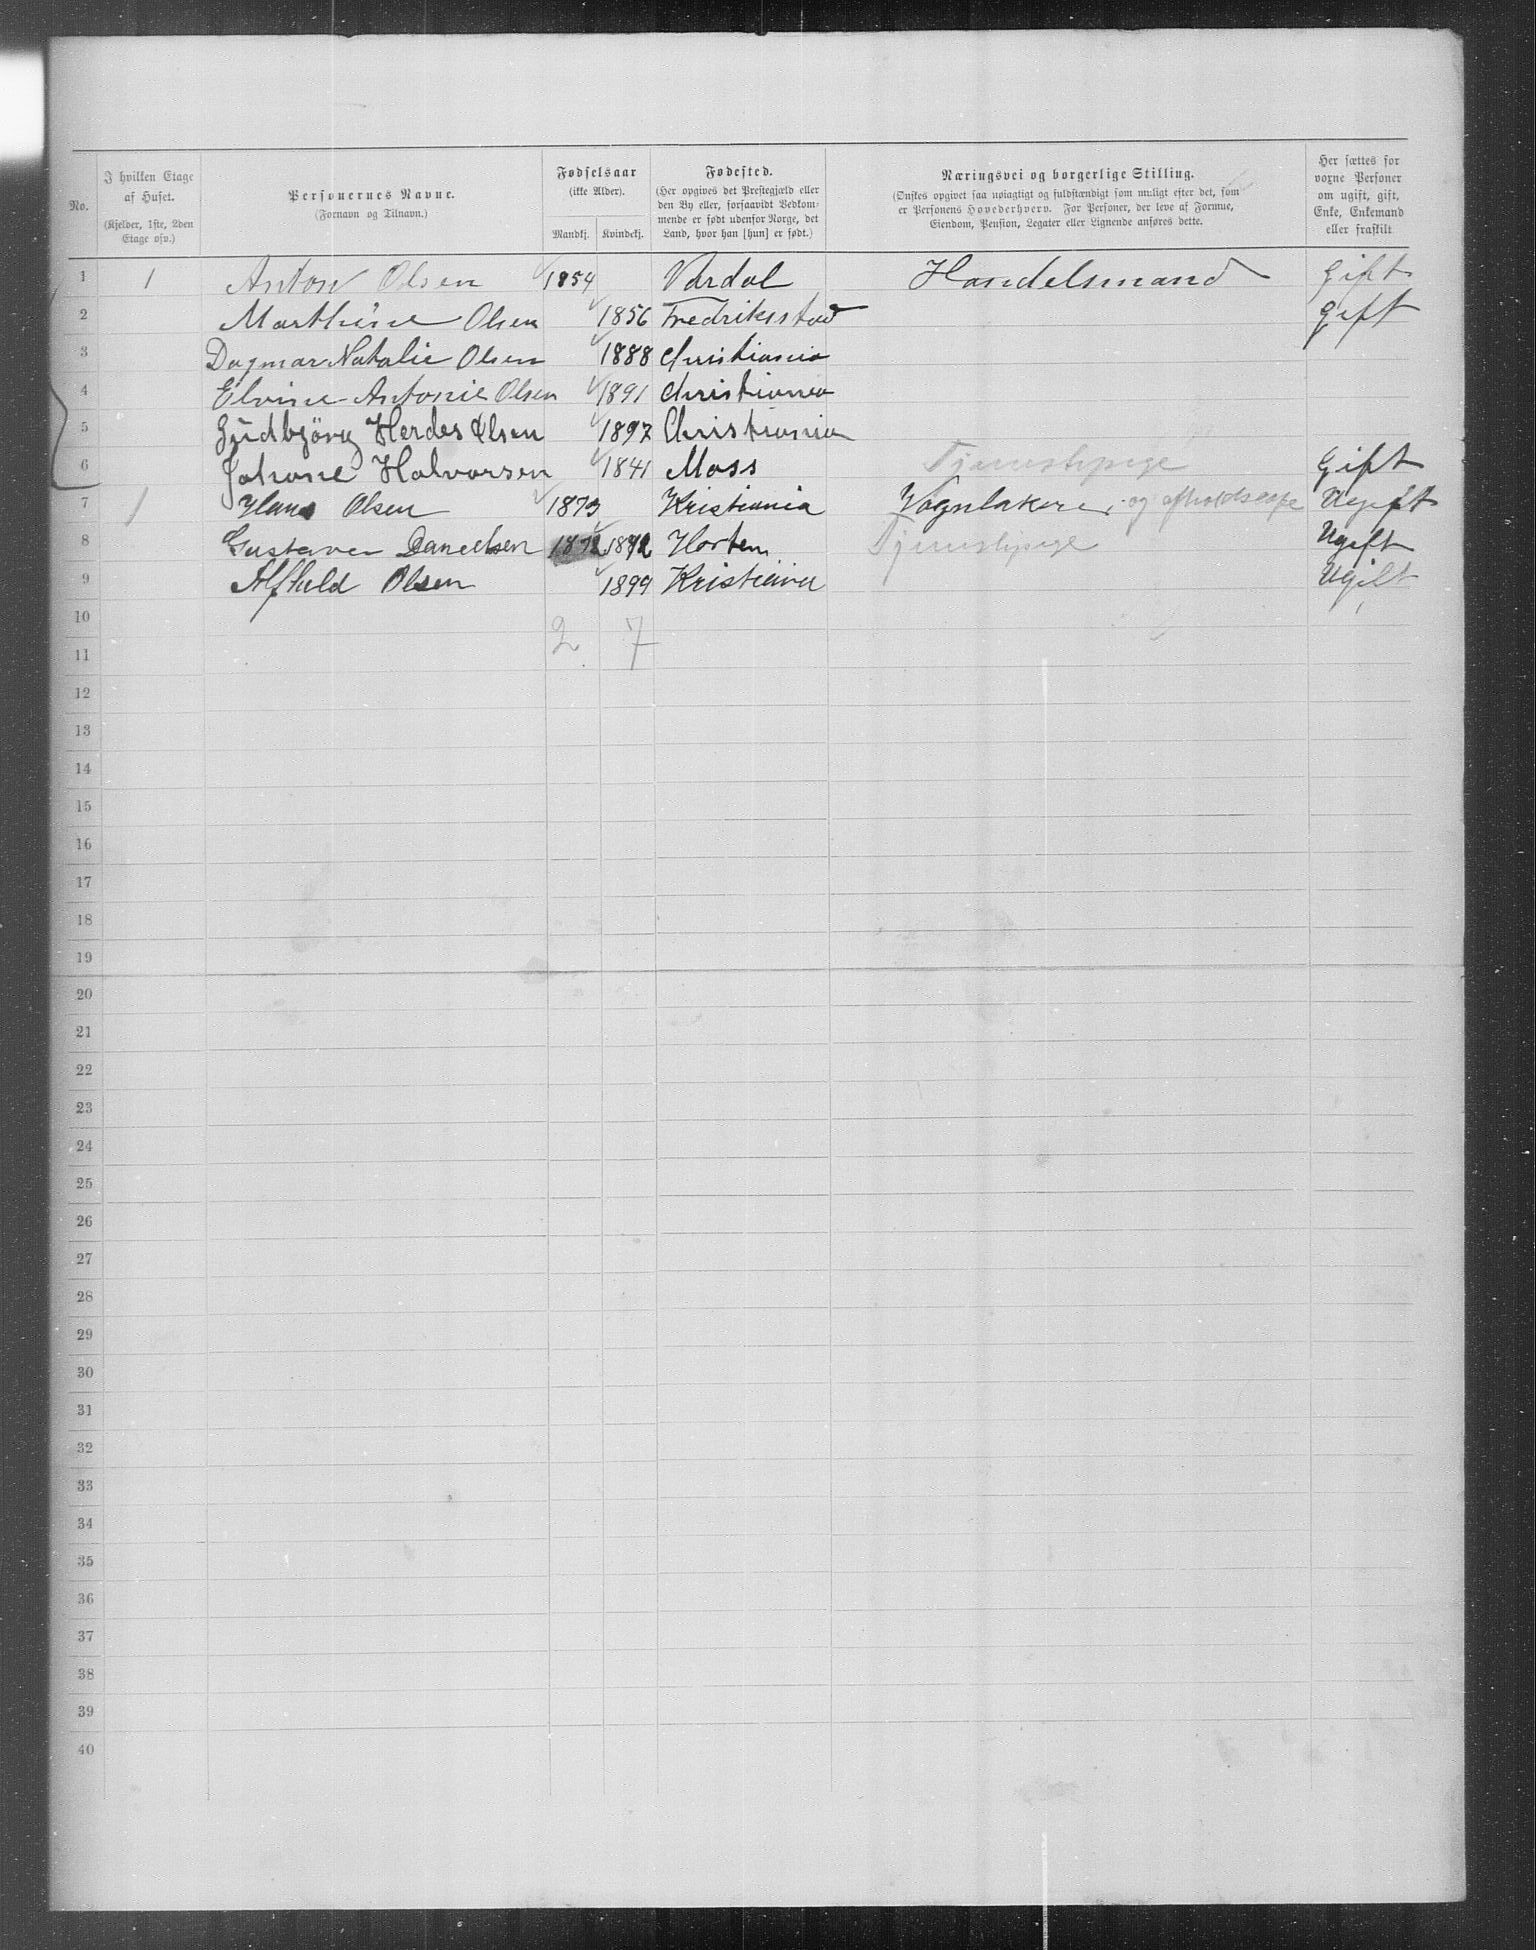 No.
I hvilken Etage af Huset.
(Kjelder, 1ste, 2den Etage osv.)
Personernes Navne.
(Fornavn og Tilnavn.)
Fødselsaar
(ikke Alder).
Mandkj. Kvindekj.
Fødested.
(Her opgives det Prestegjæld eller
den By eller, forsaavidt Vedkom-
mende er født udenfor Norge, det
Land, hvor han [hun] er født.)
Næringsvei og borgerlige Stilling.
(Ønskes opgivet saa nøiagtigt og fuldstændigt som muligt efter det, som
er Personens Hovederhverv. For Personer, der leve af Formue,
Eiendom, Pension, Legater eller Lignende anføres dette.
Her sættes for
voxne Personer
om ugift, gift,
Enke, Enkemand
eller fraskilt
1 1 Anton Olsen 1854 Vardal Handelsmand Gift
2 Marthine Olsen 1856 Fredriksstad gift
3 Dagmar Natalie Olsen 1888 Christiania
4 Elvine Antonie Olsen 1891 Christiania
5 Gudbjörg Herdes Olsen 1897 Christiania
6 Johane Halvorsen 1841 Moss Tjenestepige Gift
7 1 Hans Olsen 1873 Kristiania Vognlakerer og Ugift
8 Gustava Danielsen 1872 1872 Horten Tjenestepige Ugift
9 Alfhild Olsen 1899 Kristiania Ugift
10
2 7
11
12
13
14
15
16
17
18
19
20
21
22
23
24
25
26
27
28
29
30
31
32
33
34
35
36
37
38
39
40